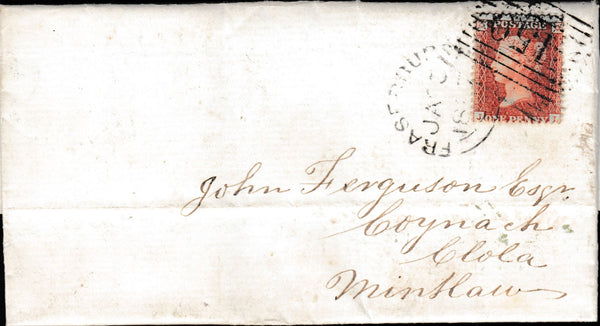 POSTAGE
ONE PENNY
FRASERBURGH
JA
John Ferguson Esqr.
Coynach
Clola
Mintlaw